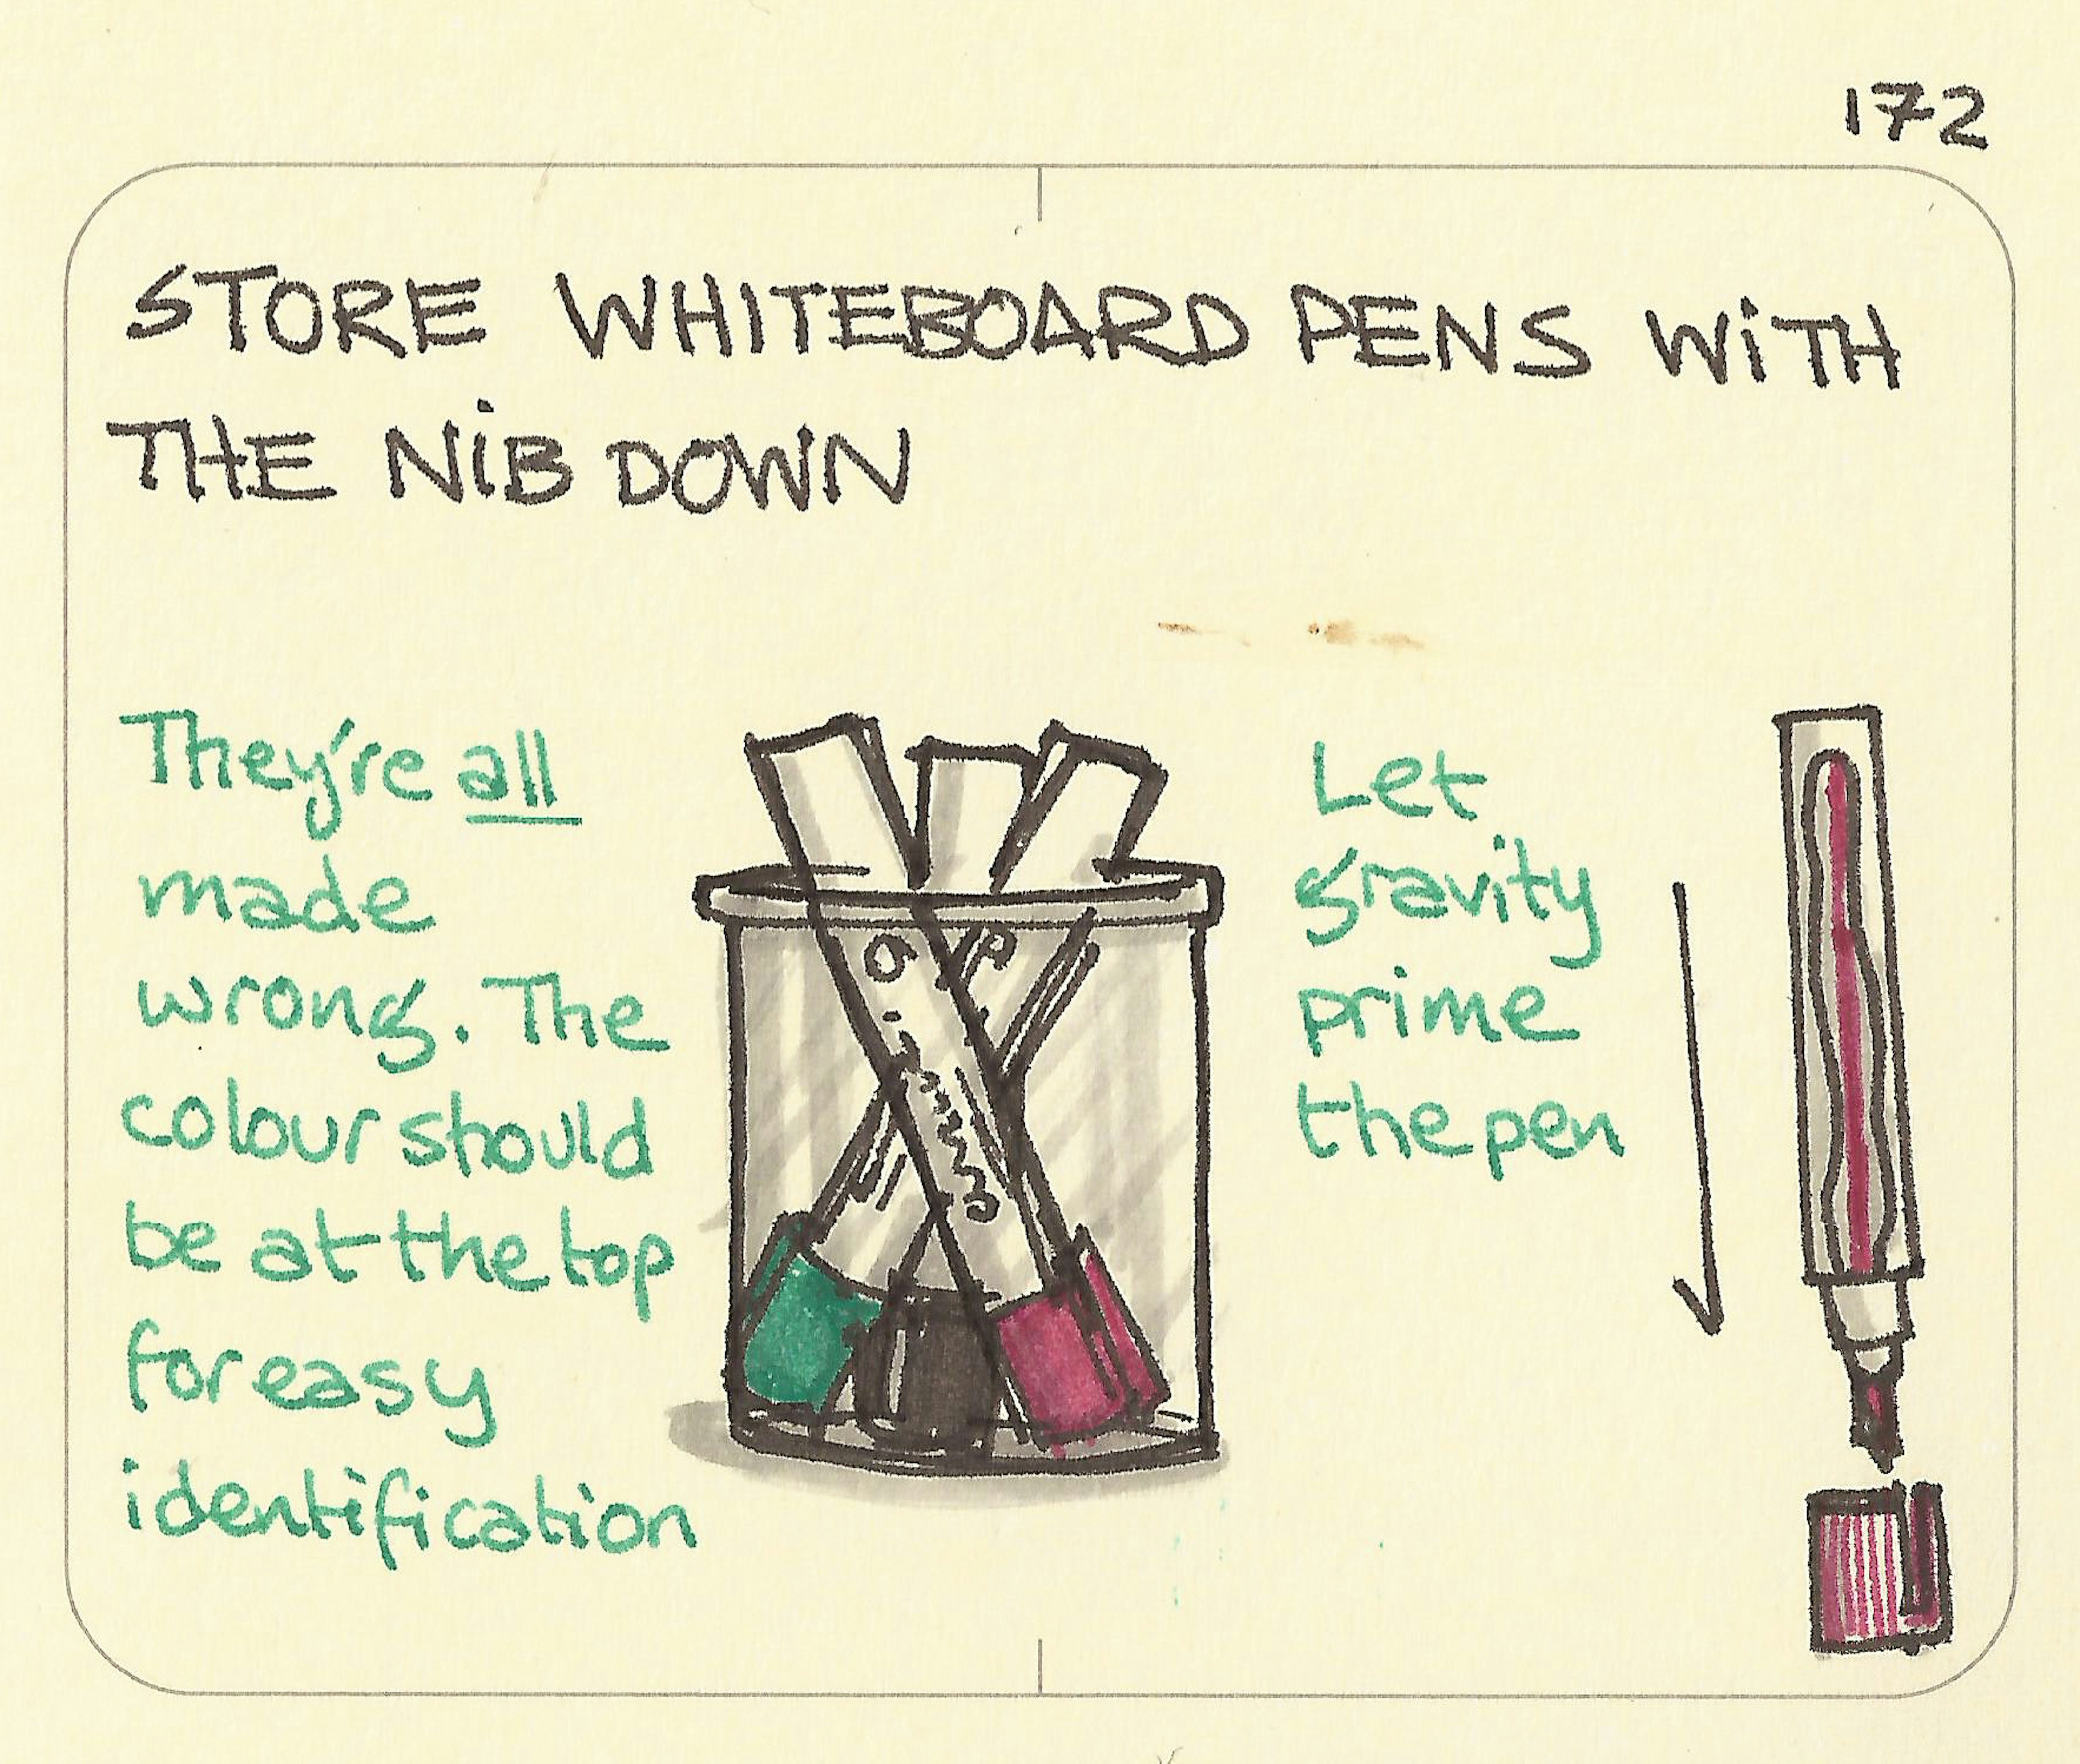 172
STORE WHITEBOARD PENS WITH
THE NIB DOWN
They're all
made
wrong. The
colour should
be at the top
for easy
identification
Let
gravity
prime
the pen